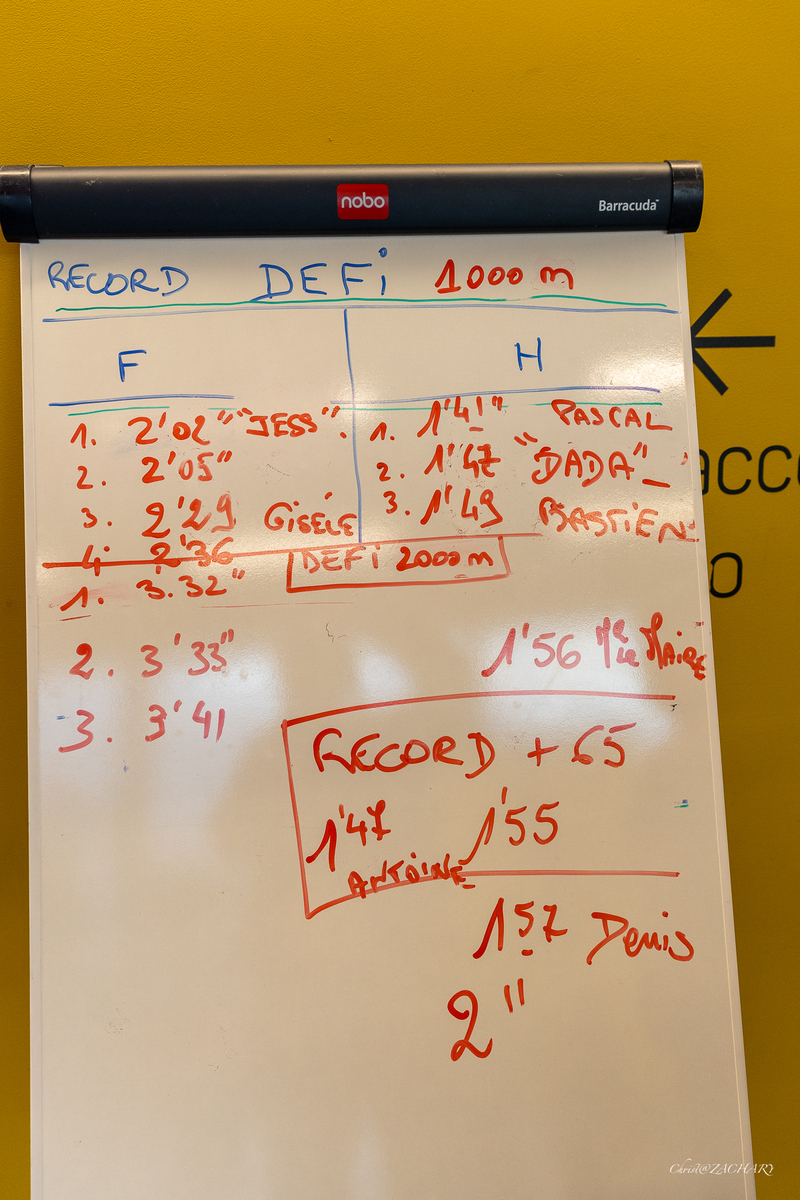 nobo
Barracuda
RECORD DEFi 1000 m
F H
1. 2'02" "JESS". 1. 1'41" PASCAL
2. 2'05" 2. 1'47 "DADA"
3. 2'29 GiSÉLE 3. 1'49 BASTIEN
4. 2'36
DEFi 2000 m
1. 3.32"
2. 3'33" 1'56 Mr Le MAiRE
3. 3'41
RECORD + 65
1'47 1'55
ANTOiNE
157 Denis
2"
acc
o
Christ@ZACHARY